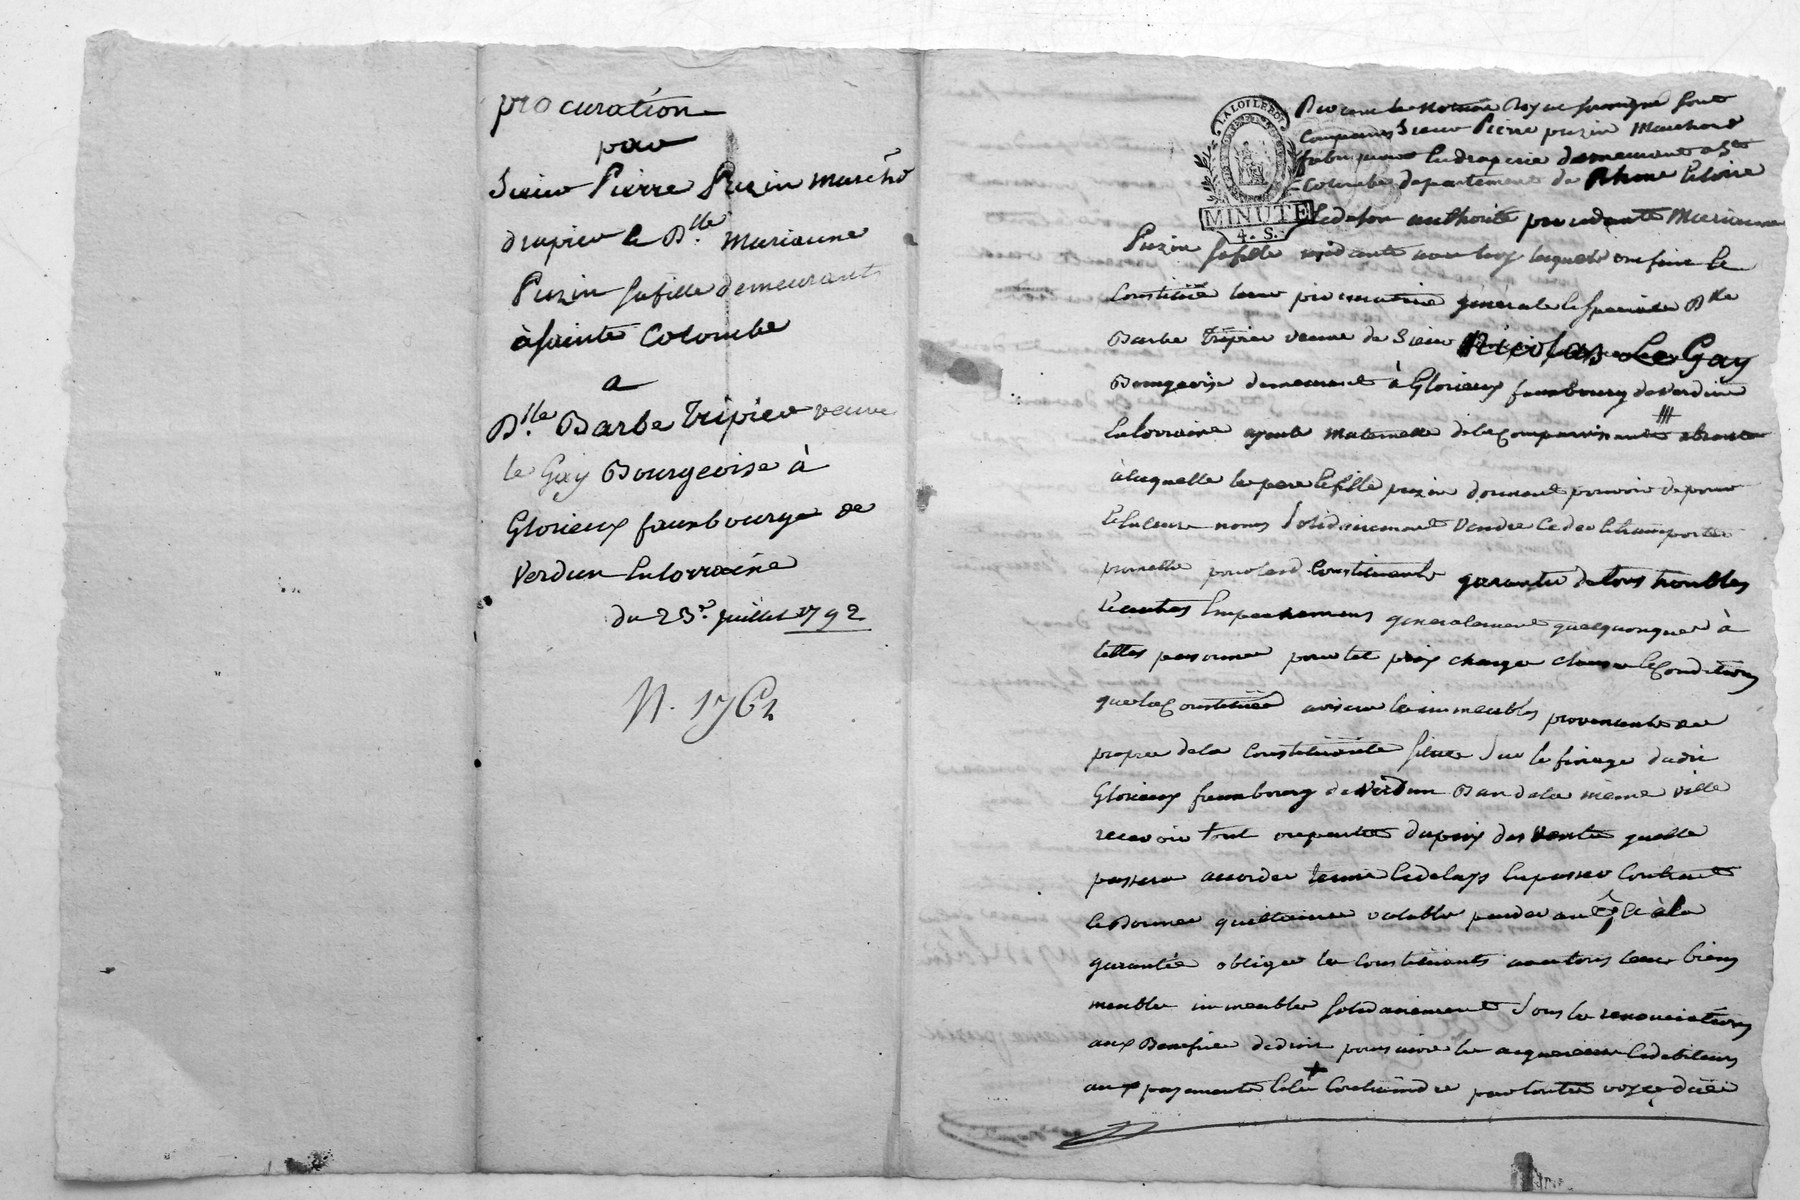 procuration
par
Sieur Pierre Puzin march.d
drapier & D.lle Marianne
Puzin sa fille demeurants
à sainte Colombe
a
D.lle Barbe Tripier veuve
le Gay Bourgeoise à
Glorieux fauxbourg de
Verdun en lorraine
du 23.e juillet 1792
N. 1762
LA LOI LE ROI
MINUTE
4. S.
notaire Royal soussigné sont
comparus Sieur Pierre puzin Marchand
fabriquant en draperie demeurant a Ste
Colombe departement de Rhone & loire
& de son authorité procedante Marianne
Puzin sa fille residante avec luy lesquels ont fait &
Constitué leur procuratrice générale & speciale Dlle
Barbe Tripier veuve de Sieur Nicolas Le Gay
Bourgeoise demeurant à Glorieux fauxbourg de Verdun
en lorraine ayeule maternelle de la comparaissante absente
à laquelle les pere & fille puzin donnent pouvoir de pour
& en leurs noms solidairement vendre ceder & transporter
promettre pour lesd. Constituants garantir de tous troubles
& autres Empechemens generalement quelquonques à
telles personnes pour tel prix charges clauses & Conditions
que la Constituée avisera les immeubles provenants de
propre de la Constituante situés sur le finage dudit
Glorieux fauxbourg de Verdun Ban de la même ville
recevoir tout ou partie du prix des ventes quelle
passera accorder terme & delays en passer Contrat
& Donner quittance valable &c à la
garantie obliger les Constituants avec tous leurs biens
meubles immeubles solidairement sous les renonciations
aux Benefice de droit poursuivre les acquereurs & debiteurs
aux payements & les Contraindre par toutes voyes dues